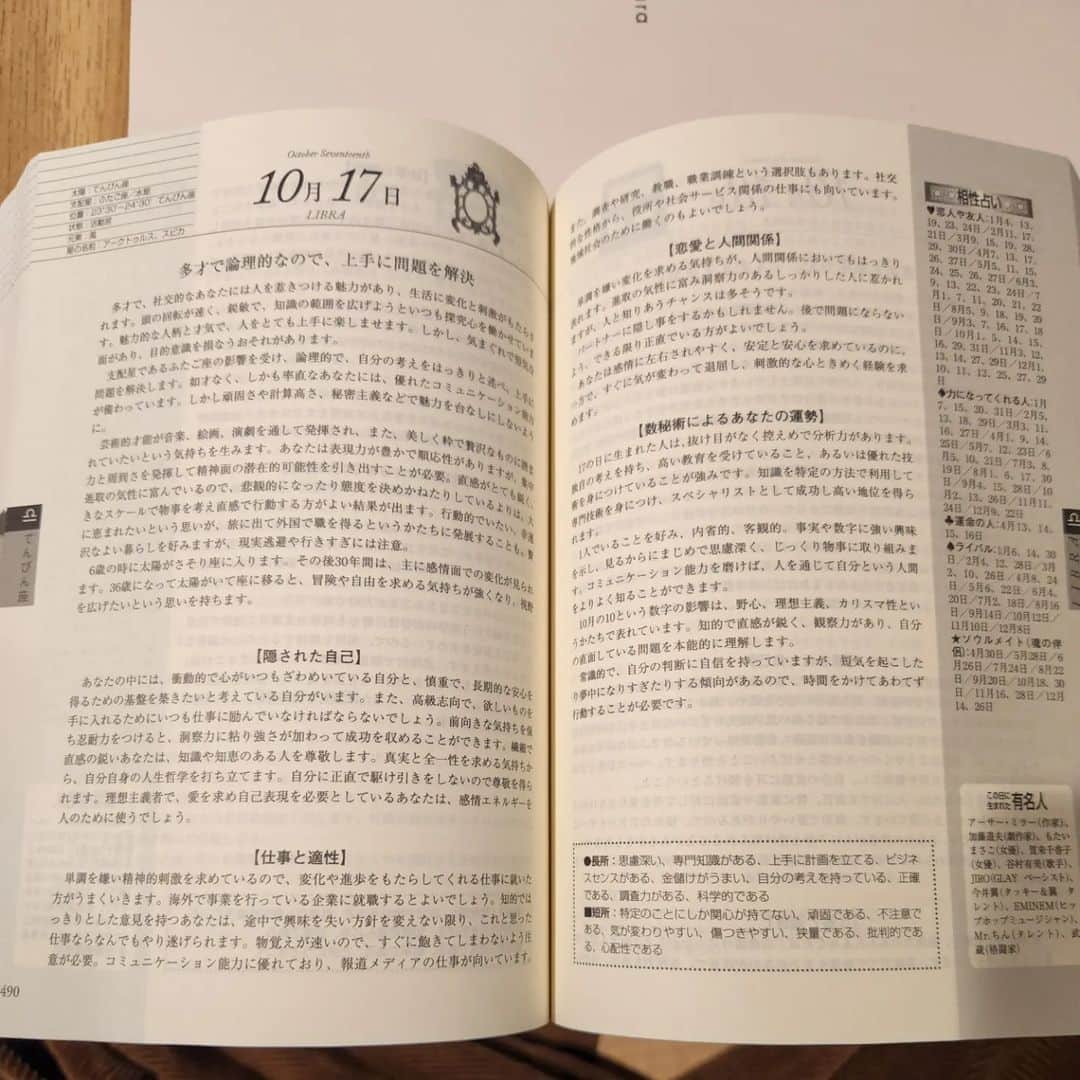 ura
October Seventeenth
10月 17日
LIBRA
太陽：てんびん座
支配星：ふたご座／水星
位置：23°30'－24°30' てんびん座
状態：活動宮
元素：風
星の名前：アークトゥルス、スピカ
多才で論理的なので、上手に問題を解決
多才で、社交的なあなたには人を惹きつける魅力があり、生活に変化と刺激がもたらさ
れます。頭の回転が速く、鋭敏で、知識の範囲を広げようといつも探究心を働かせていま
す。魅力的な人柄と才気で、人をとても上手に楽しませます。しかし、気まぐれで
面があり、目的意識を損なうおそれがあります。
支配星であるふたご座の影響を受け、論理的で、自分の考えをはっきりと述べ、上手に
問題を解決します。如才なく、しかも率直なあなたには、優れたコミュニケーション能力
が備わっています。しかし頑固さや計算高さ、秘密主義などで魅力を台なしにしないよう
に。
芸術的才能が音楽、絵画、演劇を通して発揮され、また、美しく粋で贅沢なものに囲ま
れていたいという気持ちを生みます。あなたは表現力が豊かで順応性がありますが、集中
力と周到さを発揮して精神面の潜在的可能性を引き出すことが必要。直感がとても鋭く、
進取の気性に富んでいるので、悲観的になったり態度を決めかねたりしているよりは、大
きなスケールで物事を考え直感で行動する方がよい結果が出ます。行動的でいたい、幸運
に恵まれたいという思いが、旅に出て外国で職を得るというかたちに発展することも。贅
沢なよい暮らしを好みますが、現実逃避や行きすぎには注意。
6歳の時に太陽がさそり座に入ります。その後30年間は、主に感情面での変化が見られ
ます。36歳になって太陽がいて座に移ると、冒険や自由を求める気持ちが強くなり、視野
を広げたいという思いを持ちます。
【隠された自己】
あなたの中には、衝動的で心がいつもざわめいている自分と、慎重で、長期的な安心を
得るための基盤を築きたいと考えている自分がいます。また、高級志向で、欲しいものを
手に入れるためにいつも仕事に励んでいなければならないでしょう。前向きな気持ちを保
ち忍耐力をつけると、洞察力に粘り強さが加わって成功を収めることができます。繊細で
直感の鋭いあなたは、知識や知恵のある人を尊敬します。真実と全一性を求める気持ちか
ら、自分自身の人生哲学を打ち立てます。自分に正直で駆け引きをしないので尊敬を得ら
れます。理想主義者で、愛を求め自己表現を必要としているあなたは、感情エネルギーを
人のために使うでしょう。
【仕事と適性】
単調を嫌い精神的刺激を求めているので、変化や進歩をもたらしてくれる仕事に就いた
方がうまくいきます。海外で事業を行っている企業に就職するとよいでしょう。知的では
っきりとした意見を持つあなたは、途中で興味を失い方針を変えない限り、これと思った
仕事ならなんでもやり遂げられます。物覚えが速いので、すぐに飽きてしまわないよう注
意が必要。コミュニケーション能力に優れており、報道メディアの仕事が向いています。
490
てんびん座
また、調査や研究、教職、職業訓練という選択肢もあります。社交
的な性格から、役所や社会サービス関係の仕事にも向いています。
地域社会のために働くのもよいでしょう。
【恋愛と人間関係】
単調を嫌い変化を求める気持ちが、人間関係においてもはっきり
表れます。進取の気性に富み洞察力のあるしっかりした人に惹かれ
ますが、人と知りあうチャンスは多そうです。
パートナーに隠し事をするかもしれません。後で問題にならない
よう、できる限り正直でいる方がよいでしょう。
あなたは感情に左右されやすく、安定と安心を求めているのに、
一方で、すぐに気が変わって退屈し、刺激的な心ときめく経験を求
めます。
【数秘術によるあなたの運勢】
17の日に生まれた人は、抜け目がなく控えめで分析力があります。
独自の考えを持ち、高い教育を受けていること、あるいは優れた技
術を身につけていることが強みです。知識を特定の方法で利用して
専門技術を身につけ、スペシャリストとして成功し高い地位を得ら
れます。
1人でいることを好み、内省的、客観的。事実や数字に強い興味
を示し、見るからにまじめで思慮深く、じっくり物事に取り組みま
す。コミュニケーション能力を磨けば、人を通じて自分という人間
をよりよく知ることができます。
10月の10という数字の影響は、野心、理想主義、カリスマ性とい
うかたちで表れています。知的で直感が鋭く、観察力があり、自分
の直面している問題を本能的に理解します。
常識的で、自分の判断に自信を持っていますが、短気を起こした
り夢中になりすぎたりする傾向があるので、時間をかけてあわてず
行動することが必要です。
●長所：思慮深い、専門知識がある、上手に計画を立てる、ビジネ
スセンスがある、金儲けがうまい、自分の考えを持っている、正確
である、調査力がある、科学的である
■短所：特定のことにしか関心が持てない、頑固である、不注意で
ある、気が変わりやすい、傷つきやすい、狭量である、批判的であ
る、心配性である
相性占い
♥恋人や友人：1月4、13、
19、23、24日／2月11、17、
21日／3月9、15、19、28、
29、30日／4月7、13、17、
26、27日／5月5、11、15、
24、25、26、27日／6月3、
9、13、22、23、24日／7
月1、7、11、20、21、22
日／8月5、9、18、19、20
日／9月3、7、16、17、18
日／10月1、5、14、15、
16、29、31日／11月3、12、
13、14、27、29日／12月1、
10、11、12、25、27、29
日
◆力になってくれる人：1月
7、15、20、31日／2月5、
13、18、29日／3月3、11、
16、27日／4月1、9、14、
25日／5月7、12、23日／6
月5、10、21日／7月3、8、
19日／8月1、6、17、30
日／9月4、15、28日／10
月2、13、26日／11月11、
24日／12月9、22日
♣運命の人：4月13、14、
15、16日
♠ライバル：1月6、14、30
日／2月4、12、28日／3月
2、10、26日／4月8、24
日／5月6、22日／6月4、
20日／7月2、18日／8月16
日／9月14日／10月12日／
11月10日／12月8日
★ソウルメイト（魂の伴
侶）：4月30日／5月28日／6
月26日／7月24日／8月22
日／9月20日／10月18、30
日／11月16、28日／12月
14、26日
この日に生まれた有名人
アーサー・ミラー（作家）、
加藤道夫（劇作家）、もたい
まさこ（女優）、賀来千香子
（女優）、谷村有美（歌手）、
JIRO（GLAY ベーシスト）、
今井翼（タッキー＆翼 タ
レント）、EMINEM（ヒッ
プホップミュージシャン）、
Mr.ちん（タレント）、武
蔵（格闘家）